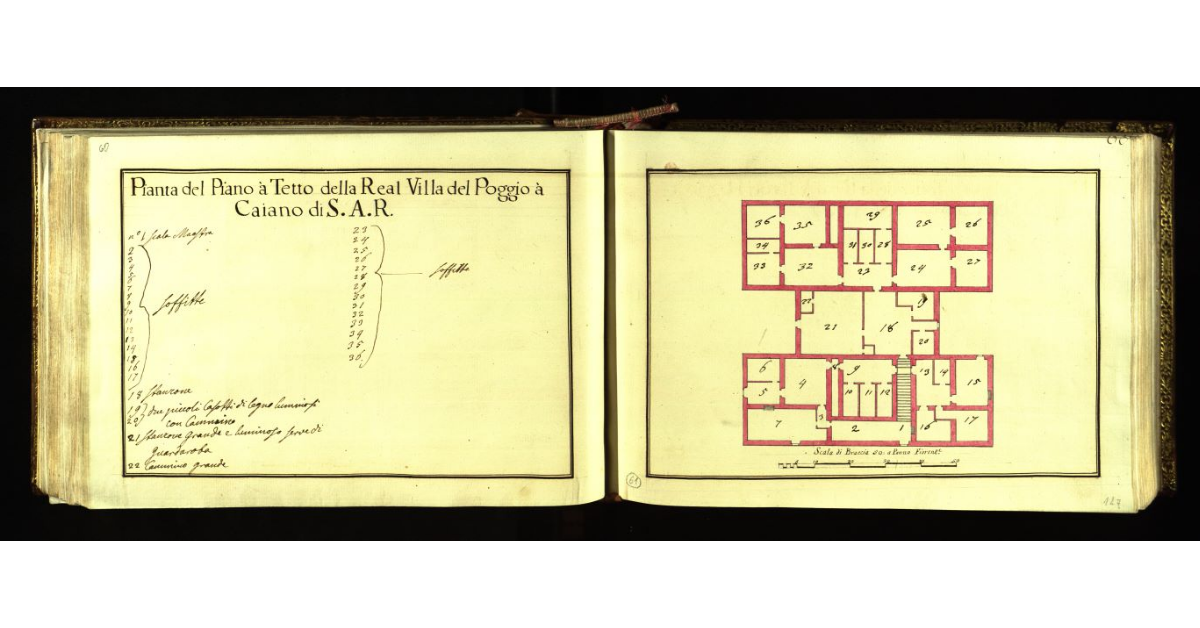 60
Pianta del Piano à Tetto della Real Villa del Poggio à
Caiano di S. A. R.
nº 1 Scala Maestra
2
3
4
5
6
7
8
9
10
11
12
13
14
15
16
17
Soffitte
18 Stanzone
19
20
due piccoli Casotti di Legno luminosi
con Cammino
21 Stanzone grande e luminoso serve di
guardaroba
22 Cammino grande
23
24
25
26
27
28
29
30
31
32
33
34
35
36
Soffitte
36 35 29 25 26
34 31 30 28
33 32 23 24 27
22 21 18 19
20
6 4 8 9 13 14 15
5 10 11 12
7 3 2 1 16 17
Scala di Braccia 50. a Panno Fiorent.
61
127